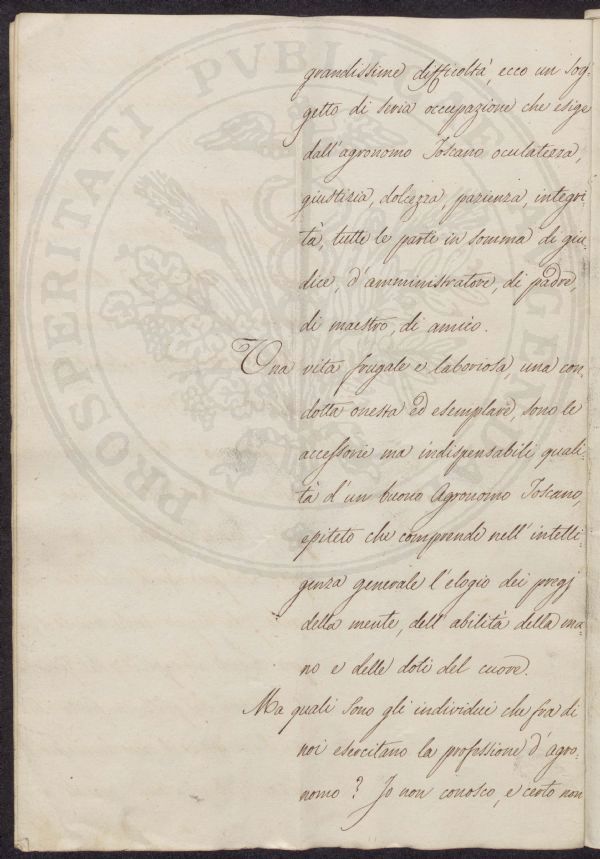 PROSPERITATI PVBLICAE AVGENDAE
grandissime difficoltà, ecco un sog-
getto di seria occupazione che esige
dall'agronomo Toscano oculatezza,
giustizia, dolcezza, pazienza, integri
tà, tutte le parte in somma di giu
dice, d'amministratore, di padre,
di maestro, di amico.
Una vita frugale e laboriosa, una con-
dotta onesta ed esemplare, sono le
accessorie ma indispensabili quali-
tà d'un buono Agronomo Toscano,
epiteto che comprende nell'intelli-
genza generale l'elogio dei pregj
della mente, dell'abilità della ma-
no e delle doti del cuore.
Ma quali sono gli individui che fra di
noi esercitano la professione d'agro-
nomo? Io non conosco, e certo non